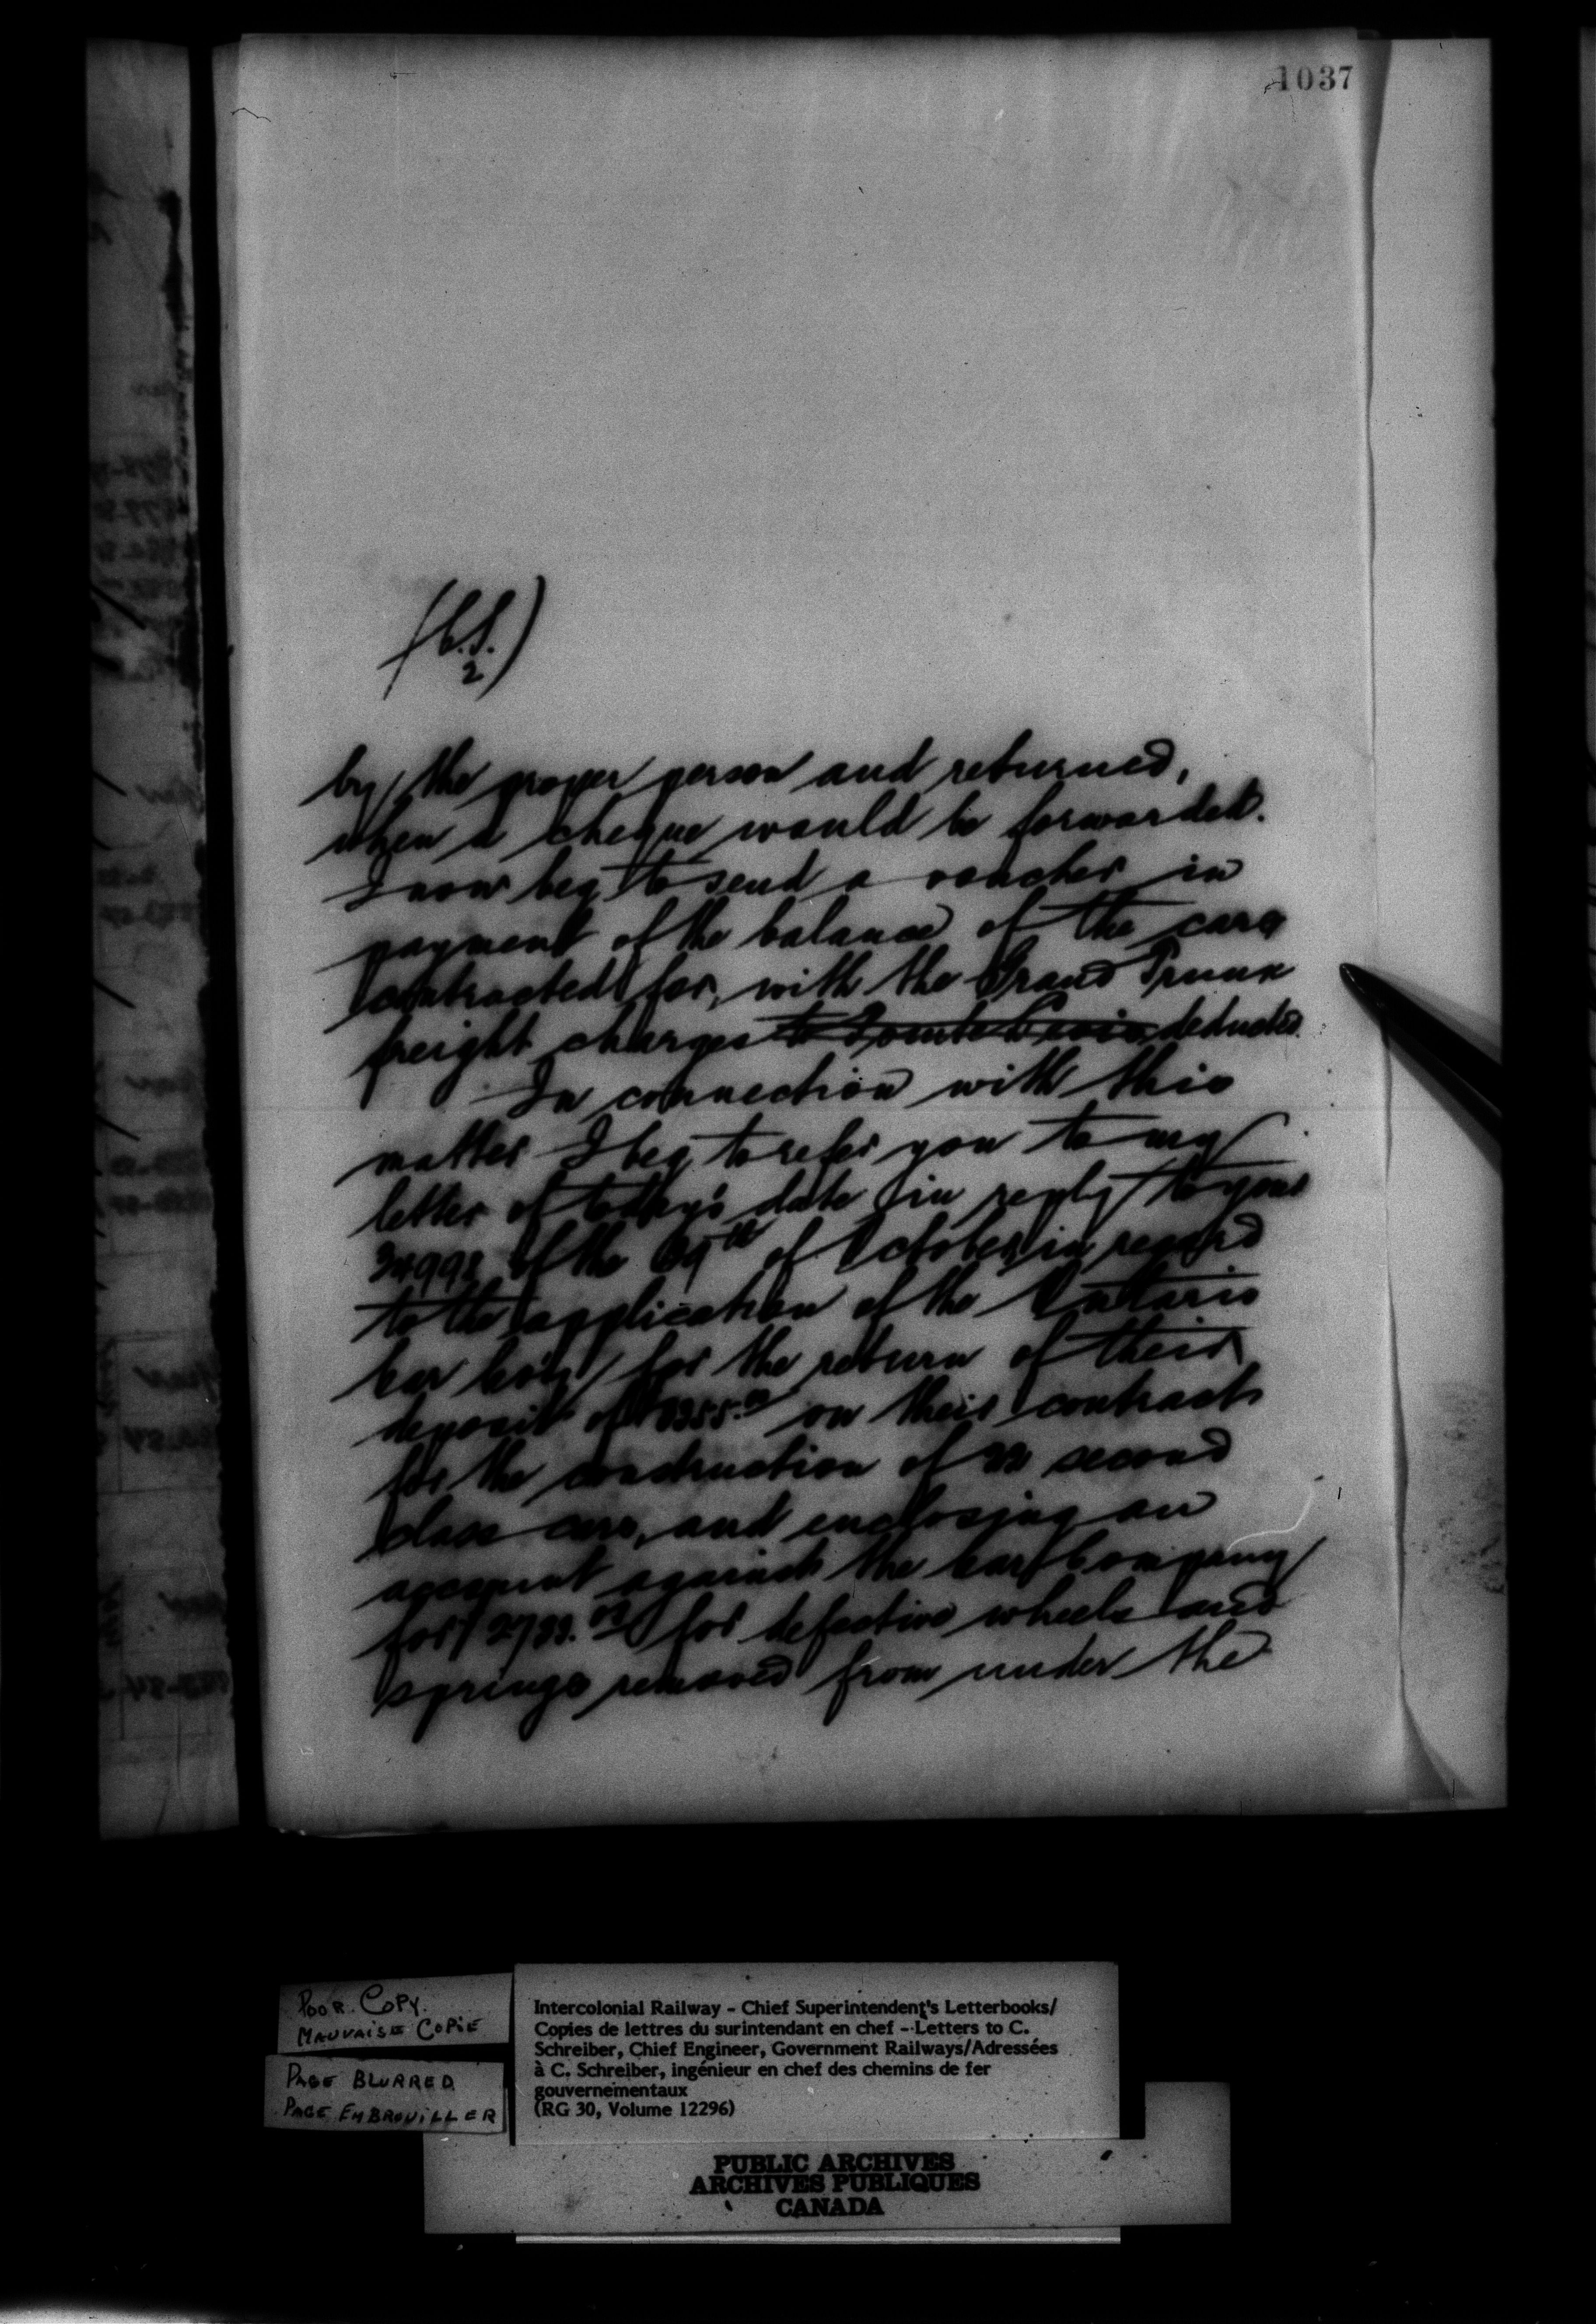 1037
(C.S.
2)
by the proper person and returned,
when a cheque would be forwarded.
I now beg to send a voucher in
payment of the balance of the cars
contracted for, with the Grand Trunk
freight charges to deducted.
In connection with this
matter I beg to refer you to my
letter of today's date in reply to your
34998 of the of October, in regard
to the application of the Ontario
Car Co'y for the return of their
deposit of on their contract
for the construction of second
class cars, and enclosing an
account against the Car Company
for for defective wheels and
springs removed from under the
POOR COPY.
MAUVAISE COPIE
PAGE BLURRED
PAGE EMBROUILLER
Intercolonial Railway – Chief Superintendent's Letterbooks/
Copies de lettres du surintendant en chef – Letters to C.
Schreiber, Chief Engineer, Government Railways/Adressées
à C. Schreiber, ingénieur en chef des chemins de fer
gouvernementaux
(RG 30, Volume 12296)
PUBLIC ARCHIVES
ARCHIVES PUBLIQUES
CANADA